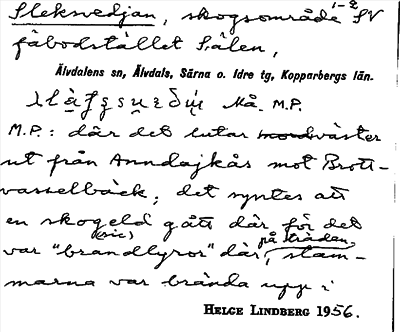 Sleksvedjan, skogsområde 1-2 SV
fäbodstället Sälen,
Älvdalens sn, Älvdals, Särna o. Idre tg, Kopparbergs län.
Må. M.P.
M.P.: där det lutar väster
ut från Anndajkås mot Brott-
vasselbäck; det syntes att
en skogeld gått där för det
(sic) på trädan,
var "brandlyror" där, stam-
marna var brända upp.
HELGE LINDBERG 1956.